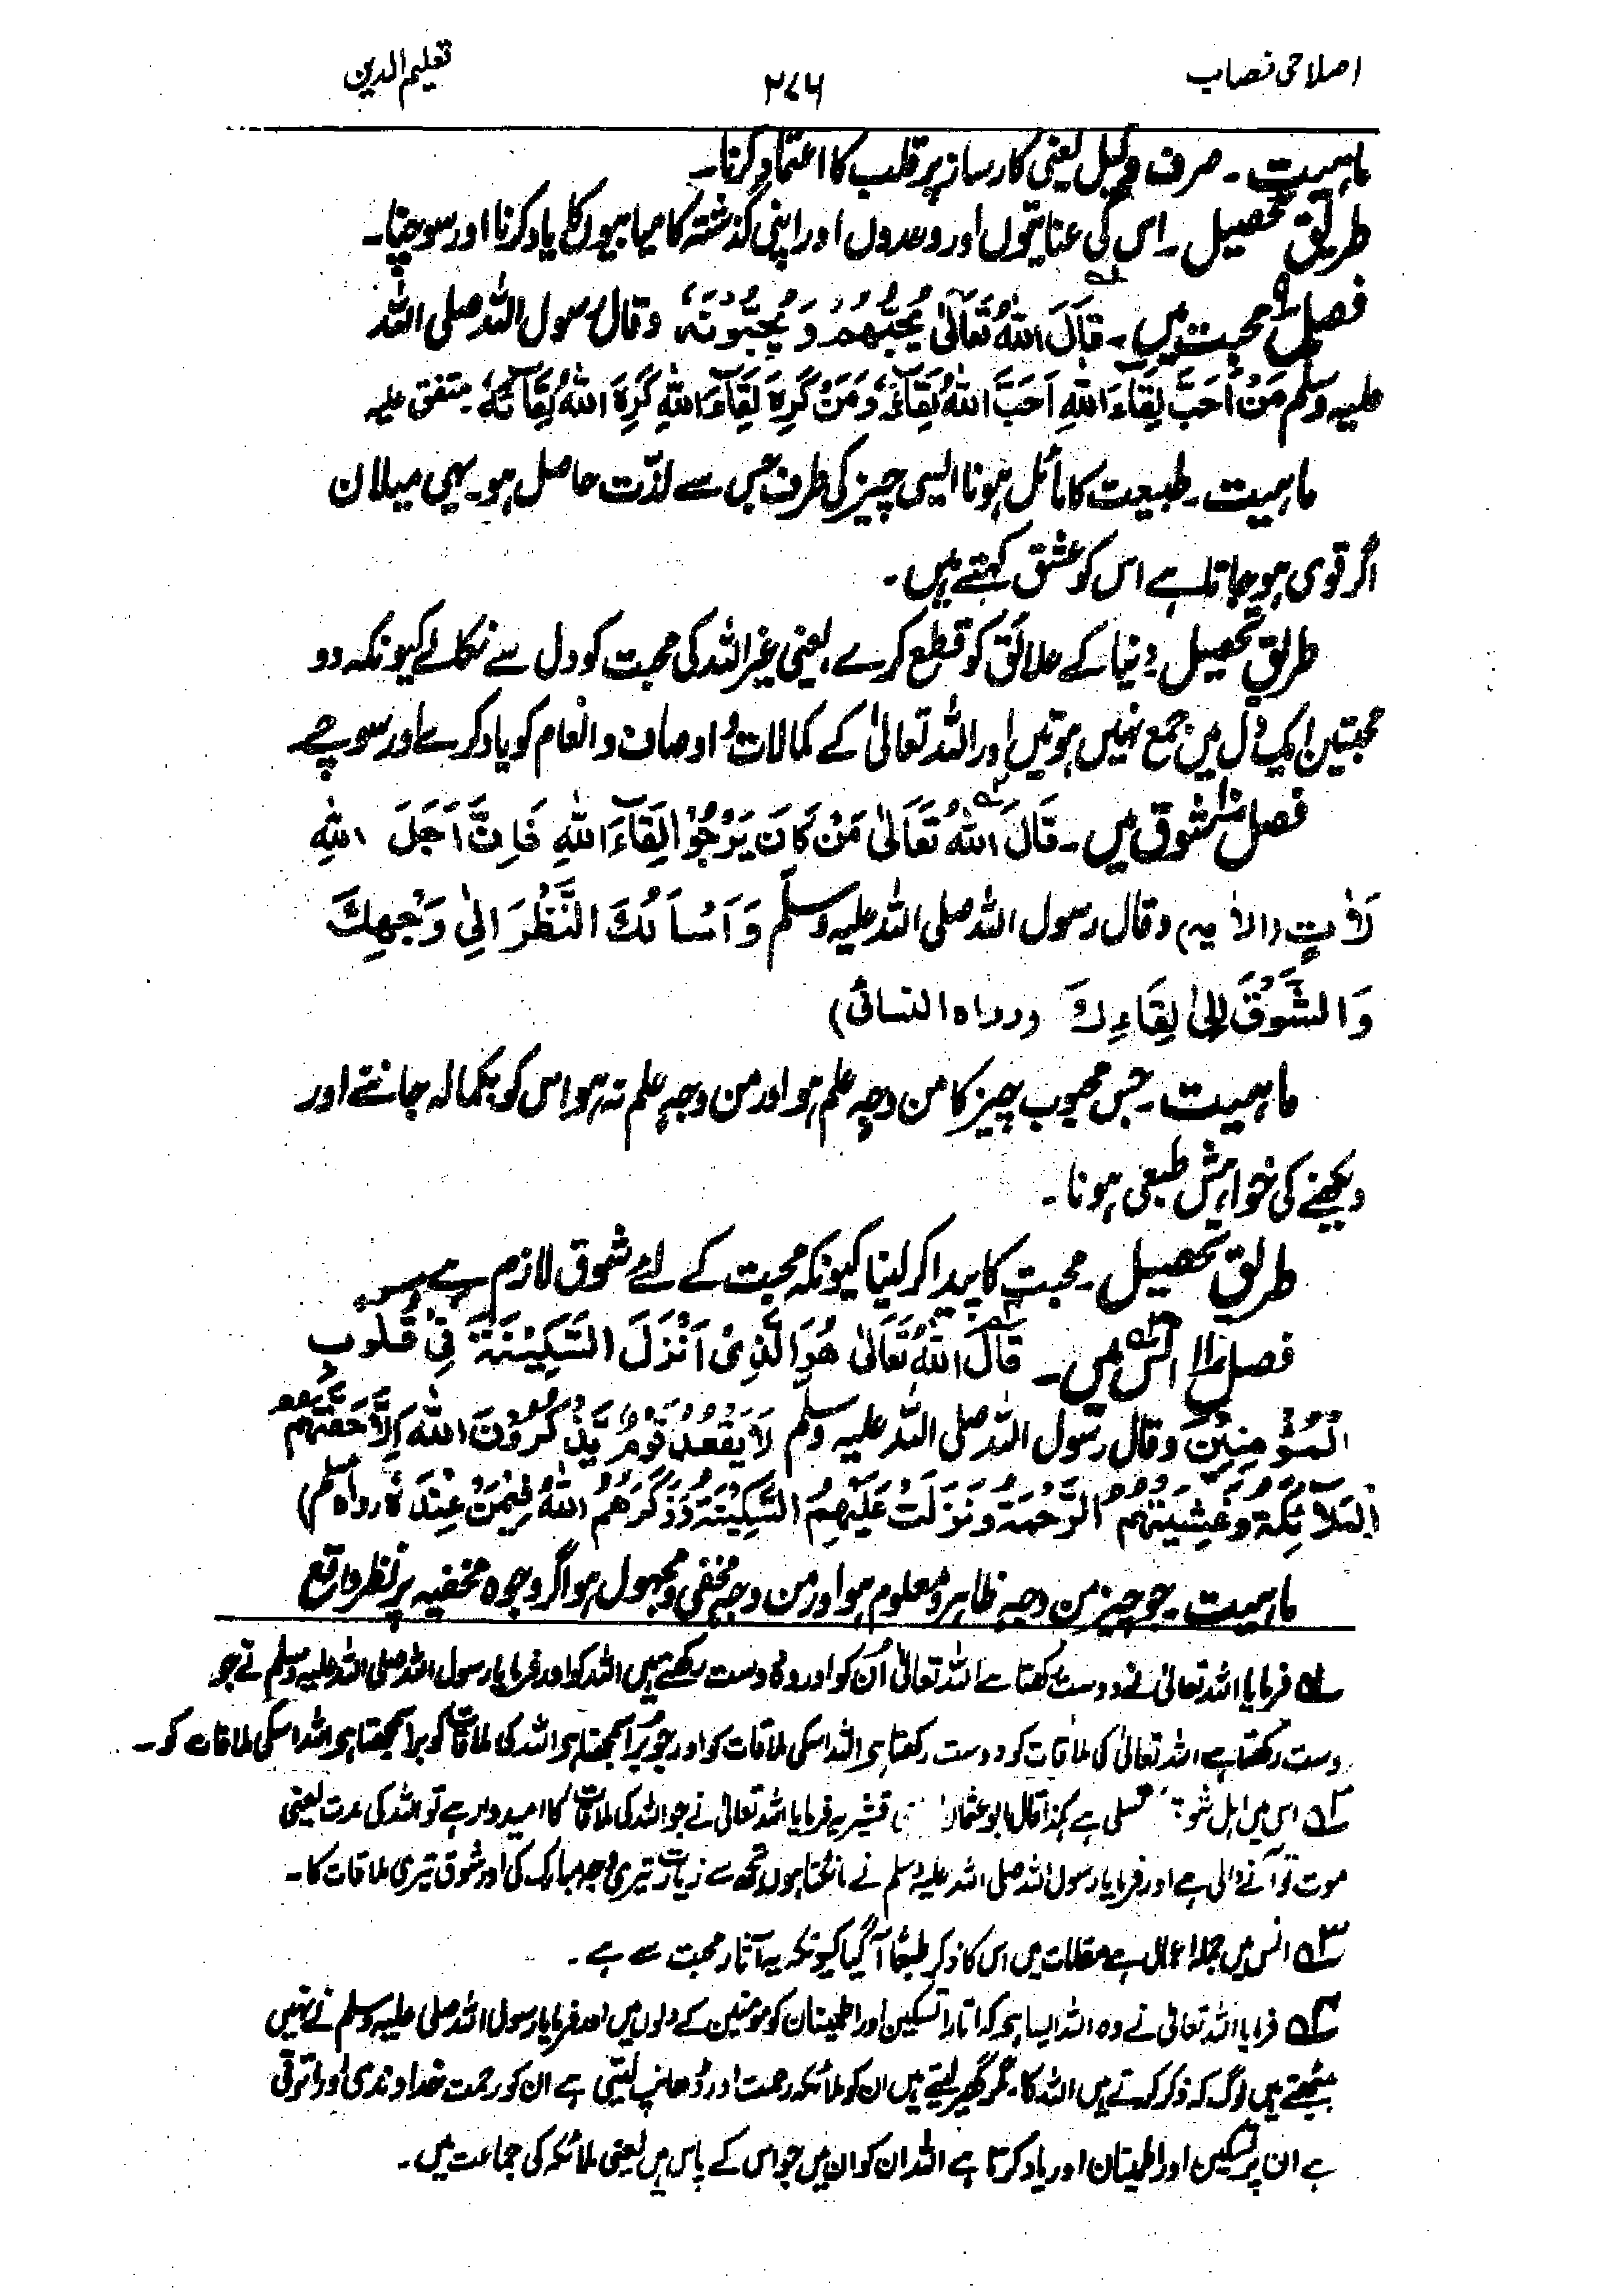 اصلاحی نصاب
۲۷۶
تعلیم الدین
ماہیت ۔ صرف وکیل یعنی کارساز پر قلب کا اعتماد کرنا۔
طریق تحصیل ۔ اس کی عنایتوں اور وعدوں اور اپنی گذشتہ کامیابیوں کا یاد کرنا اور سوچنا۔
فصل ۹ محبت میں ۔ قَالَ اللّٰہُ تَعَالٰی یُحِبُّھُمْ وَ یُحِبُّوْنَہٗ وقال رسول اللہ صلی اللہ
علیہ وسلم مَنْ اَحَبَّ لِقَآءَ اللّٰہِ اَحَبَّ اللّٰہُ لِقَآءَہٗ وَمَنْ کَرِہَ لِقَآءَ اللّٰہِ کَرِہَ اللّٰہُ لِقَآئَہٗ متفق علیہ
ماہیت ۔ طبیعت کا مائل ہونا ایسی چیز کی طرف جس سے لذّت حاصل ہو۔ یہی میلان
اگر قوی ہو جاتا ہے اس کو عشق کہتے ہیں ۔
طریق تحصیل دنیا کے علائق کو قطع کرے یعنی غیر اللہ کی محبت کو دل سے نکالے کیونکہ دو
محبتیں ایک دل میں جمع نہیں ہوتیں اور اللہ تعالیٰ کے کمالات و اوصاف و انعام کو یاد کرے اور سوچے۔
فصل ۱۰ شوق میں ۔ قَالَ اللّٰہُ تَعَالٰی مَنْ کَانَ یَرْجُوْا لِقَآءَ اللّٰہِ فَاِنَّ اَجَلَ اللّٰہِ
لَاٰتٍ (الاٰیہ) وقال رسول اللہ صلی اللہ علیہ وسلم وَاَسْاَلُکَ النَّظْرَ اِلٰی وَجْھِکَ
وَالشَّوْقَ اِلٰی لِقَاءِکَ (رواہ النسائی)
ماہیت ۔ جس محبوب چیز کا من وجہٍ علم ہو اور من وجہٍ علم نہ ہو اس کو بکمالہ جاننے اور
دیکھنے کی خواہش طبعی ہونا ۔
طریق تحصیل ۔ محبت کا پیدا کر لینا کیونکہ محبت کے لئے شوق لازم ہے۔
فصل ۱۱ انس میں ۔ قَالَ اللّٰہُ تَعَالٰی ھُوَ الَّذِیْ اَنْزَلَ السَّکِیْنَۃَ فِیْ قُلُوْبِ
الْمُؤْمِنِیْنَ وقال رسول اللہ صلی اللہ علیہ وسلم لَا یَقْعُدُ قَوْمٌ یَّذْکُرُوْنَ اللّٰہَ اِلَّا حَفَّتْھُمُ
الْمَلَآئِکَۃُ وَغَشِیَتْھُمُ الرَّحْمَۃُ وَنَزَلَتْ عَلَیْھِمُ السَّکِیْنَۃُ وَذَکَرَھُمُ اللّٰہُ فِیْمَنْ عِنْدَہٗ (رواہ مسلم)
ماہیت ۔ جو چیز من وجہٍ ظاہر و معلوم ہو اور من وجہٍ مخفی و مجہول ہو اگر وجوہ مخفیہ پر نظر واقع
۱؎ فرمایا اللہ تعالیٰ نے دوست رکھتا ہے اللہ تعالیٰ اُن کو اور وہ دوست رکھتے ہیں اللہ کو اور فرمایا رسول اللہ صلی اللہ علیہ وسلم نے جو
دوست رکھتا ہے اللہ تعالیٰ کی ملاقات کو دوست رکھتا ہو اللہ اسکی ملاقات کو اور جو بُرا سمجھتا ہو اللہ کی ملاقات کو برا سمجھتا ہو اللہ اسکی ملاقات کو ۔
۲؎ اس میں اہل تسلی ہے کذا قال ابو عثمان قشیریہ فرمایا اللہ تعالیٰ نے جو اللہ کی ملاقات کا امیدوار ہے تو اللہ کی مدت یعنی
موت تو آنے والی ہے اور فرمایا رسول اللہ صلی اللہ علیہ وسلم نے مانگتا ہوں تجھ سے زیارت تیری وجہ مبارک کی اور شوق تیری ملاقات کا ۔
۳؎ انس میں جملہ احوال ہے مقامات میں اس کا ذکر طبعًا آ گیا کیونکہ یہ آثار محبت سے ہے ۔
۴؎ فرمایا اللہ تعالیٰ نے وہ اللہ ایسا ہو کہ اتارا تسکین اور اطمینان کو مومنین کے دلوں میں اور فرمایا رسول اللہ صلی علیہ وسلم نے نہیں
بیٹھتے ہیں لوگ کہ ذکر کرتے ہیں اللہ کا ۔ مگر گھیر لیتے ہیں ان کو ملائکہ رحمت اور ڈھانپ لیتی ہے ان کو رحمت خداوندی اور اترتی
ہے ان پر تسکین اور اطمینان اور یاد کرتا ہے اللہ ان کو ان میں جو اس کے پاس ہیں یعنی ملائکہ کی جماعت میں ۔